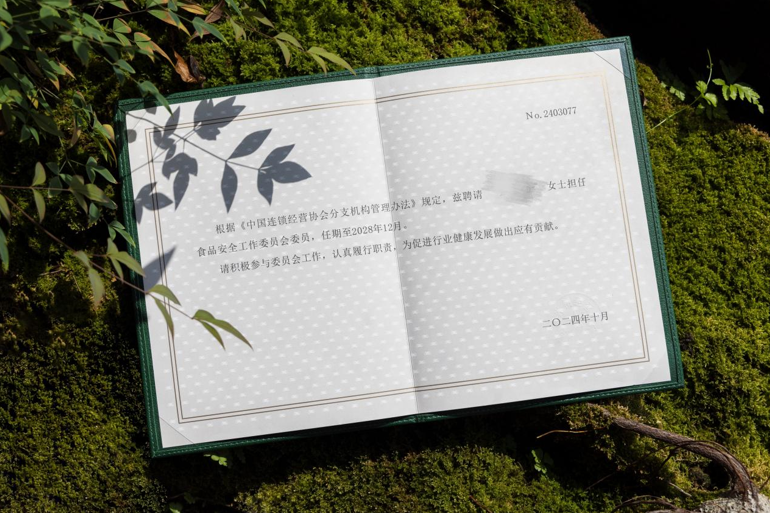 No.2403077
根据《中国连锁经营协会分支机构管理办法》规定，兹聘请 女士担任
食品安全工作委员会委员，任期至2028年12月。
请积极参与委员会工作，认真履行职责，为促进行业健康发展做出应有贡献。
二〇二四年十月